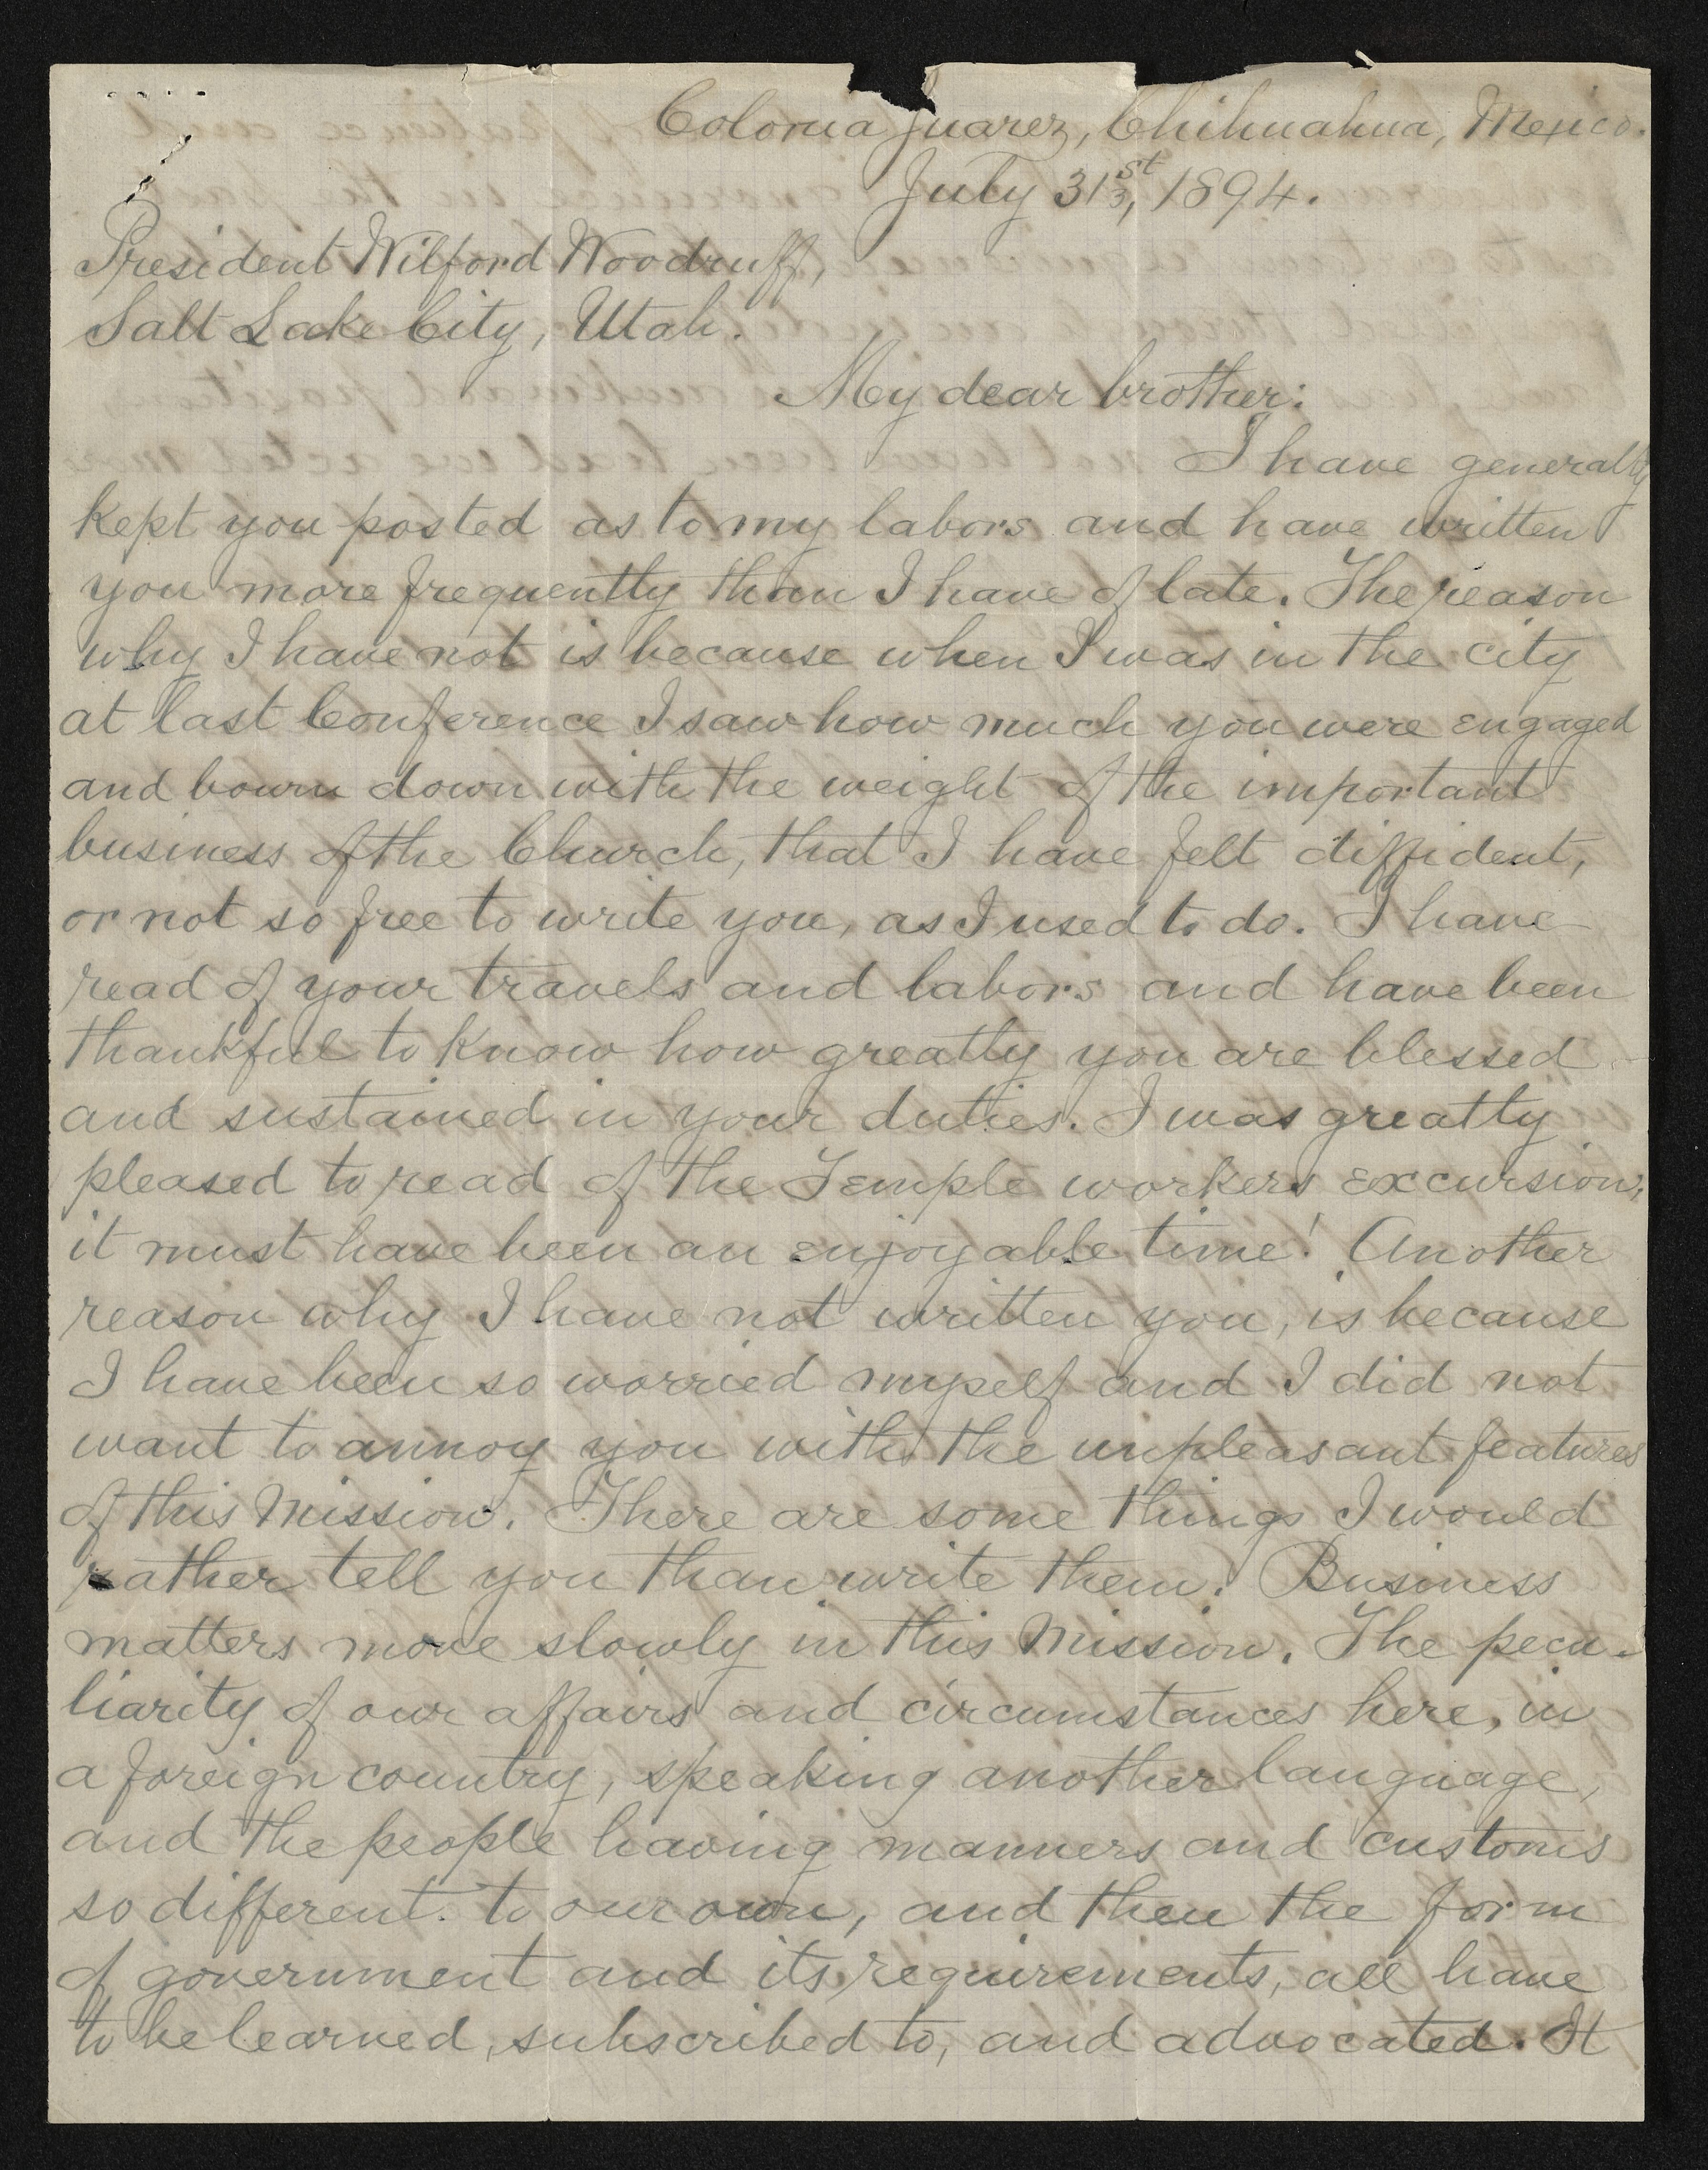 Colonia Juarez, Chihuahua, Mexico.
July 31st, 1894.
President Wilford Woodruff,
Salt Lake City, Utah.
My dear brother:
I have generally
kept you posted as to my labors and have written
you more frequently than I have of late. The reason
why I have not is because when I was in the city
at last Conference I saw how much you were engaged
and bowed down with the weight of the important
business of the Church, that I have felt diffident,
or not so free to write you, as I used to do. I have
read of your travels and labors and have been
thankful to know how greatly you are blessed
and sustained in your duties. I was greatly
pleased to read of the Temple workers excursion;
it must have been an enjoyable time! Another
reason why I have not written you, is because
I have been so worried myself and I did not
want to annoy you with the unpleasant features
of this Mission. There are some things I would
rather tell you than write them. Business
matters move slowly in this Mission. The pecu-
liarity of our affairs and circumstances here, in
a foreign country, speaking another language,
and the people having manners and customs
so different to our own, and then the form
of government and its requirements, all have
to be learned, subscribed to, and advocated. It